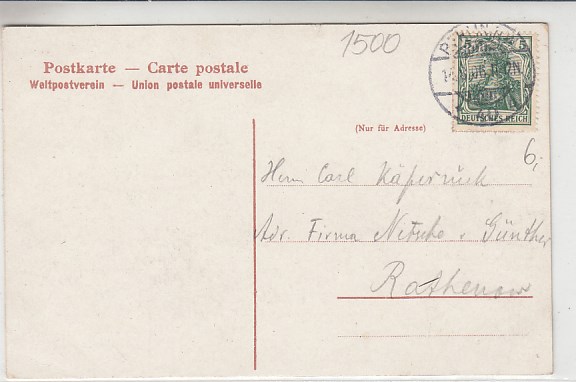 1500
Postkarte — Carte postale
Weltpostverein — Union postale universelle
5 5
DEUTSCHES REICH
(Nur für Adresse)
6,
Herrn Carl
Adr. Firma Nitsche & Günther
Rathenow